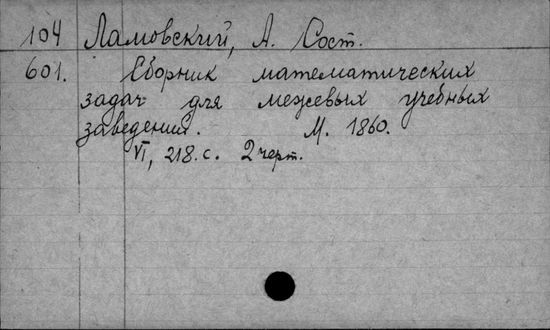 104 Ламовский, А. Сост.
601. Сборник математических
задач для межевых учебных
заведений. М. 1860.
VI, 218. с. 2 черт.